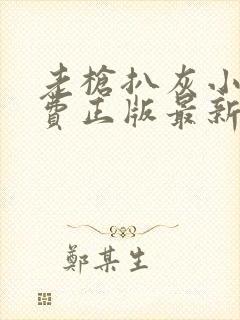 走槍扒灰小
費正版最新
鄭某生